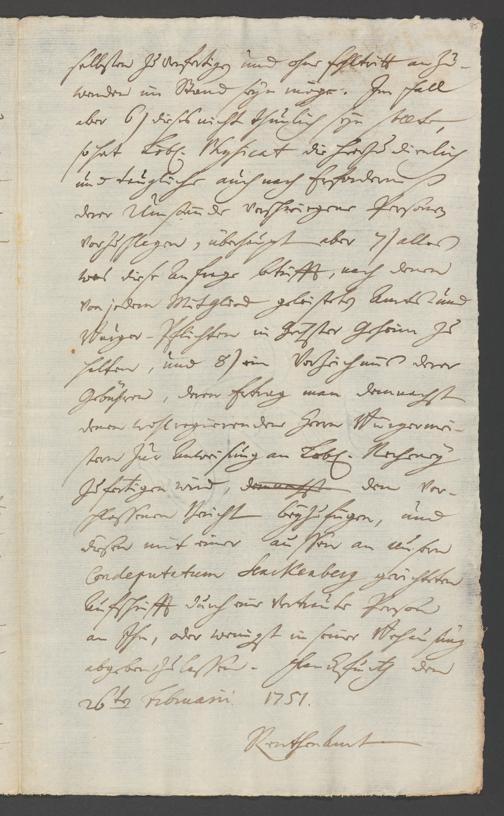 selbsten zu verfertigen und ohne Fehltritt anzu-
wenden im Stand seyn möge. Im fall
aber 6) dieses nicht thunlich seyn sollte,
so hat Löbl. Physicat die hierzu dienlich
und taugliche auch nach Erfordernuß
derer Umstände verschwiegene Personen
vorzuschlagen, überhaupt aber 7) alles
was diese Anfrage betrifft, nach denen
von jedem Mitglied geleisteten Amts- und
Bürger-Pflichten in höchster Geheim zu
halten, und 8) ein Verzeichnus derer
Gebühren, deren Ertrag man demnächst
denen wohlregierenden Herrn Burgermei-
stern zur Anweisung an Löbl. Recheney
zufertigen wird, demnächst dem ver-
schlossenen Bericht beyzufügen, und
diesen mit einer aussen an unsern
Condeputatum Hackenberg gerichteten
Aufschrifft durch eine vertraute Person
an Ihn, oder wenigst in seiner Behausung
abgeben zu lassen. Franckfurth den
26ten Februarii 1751.